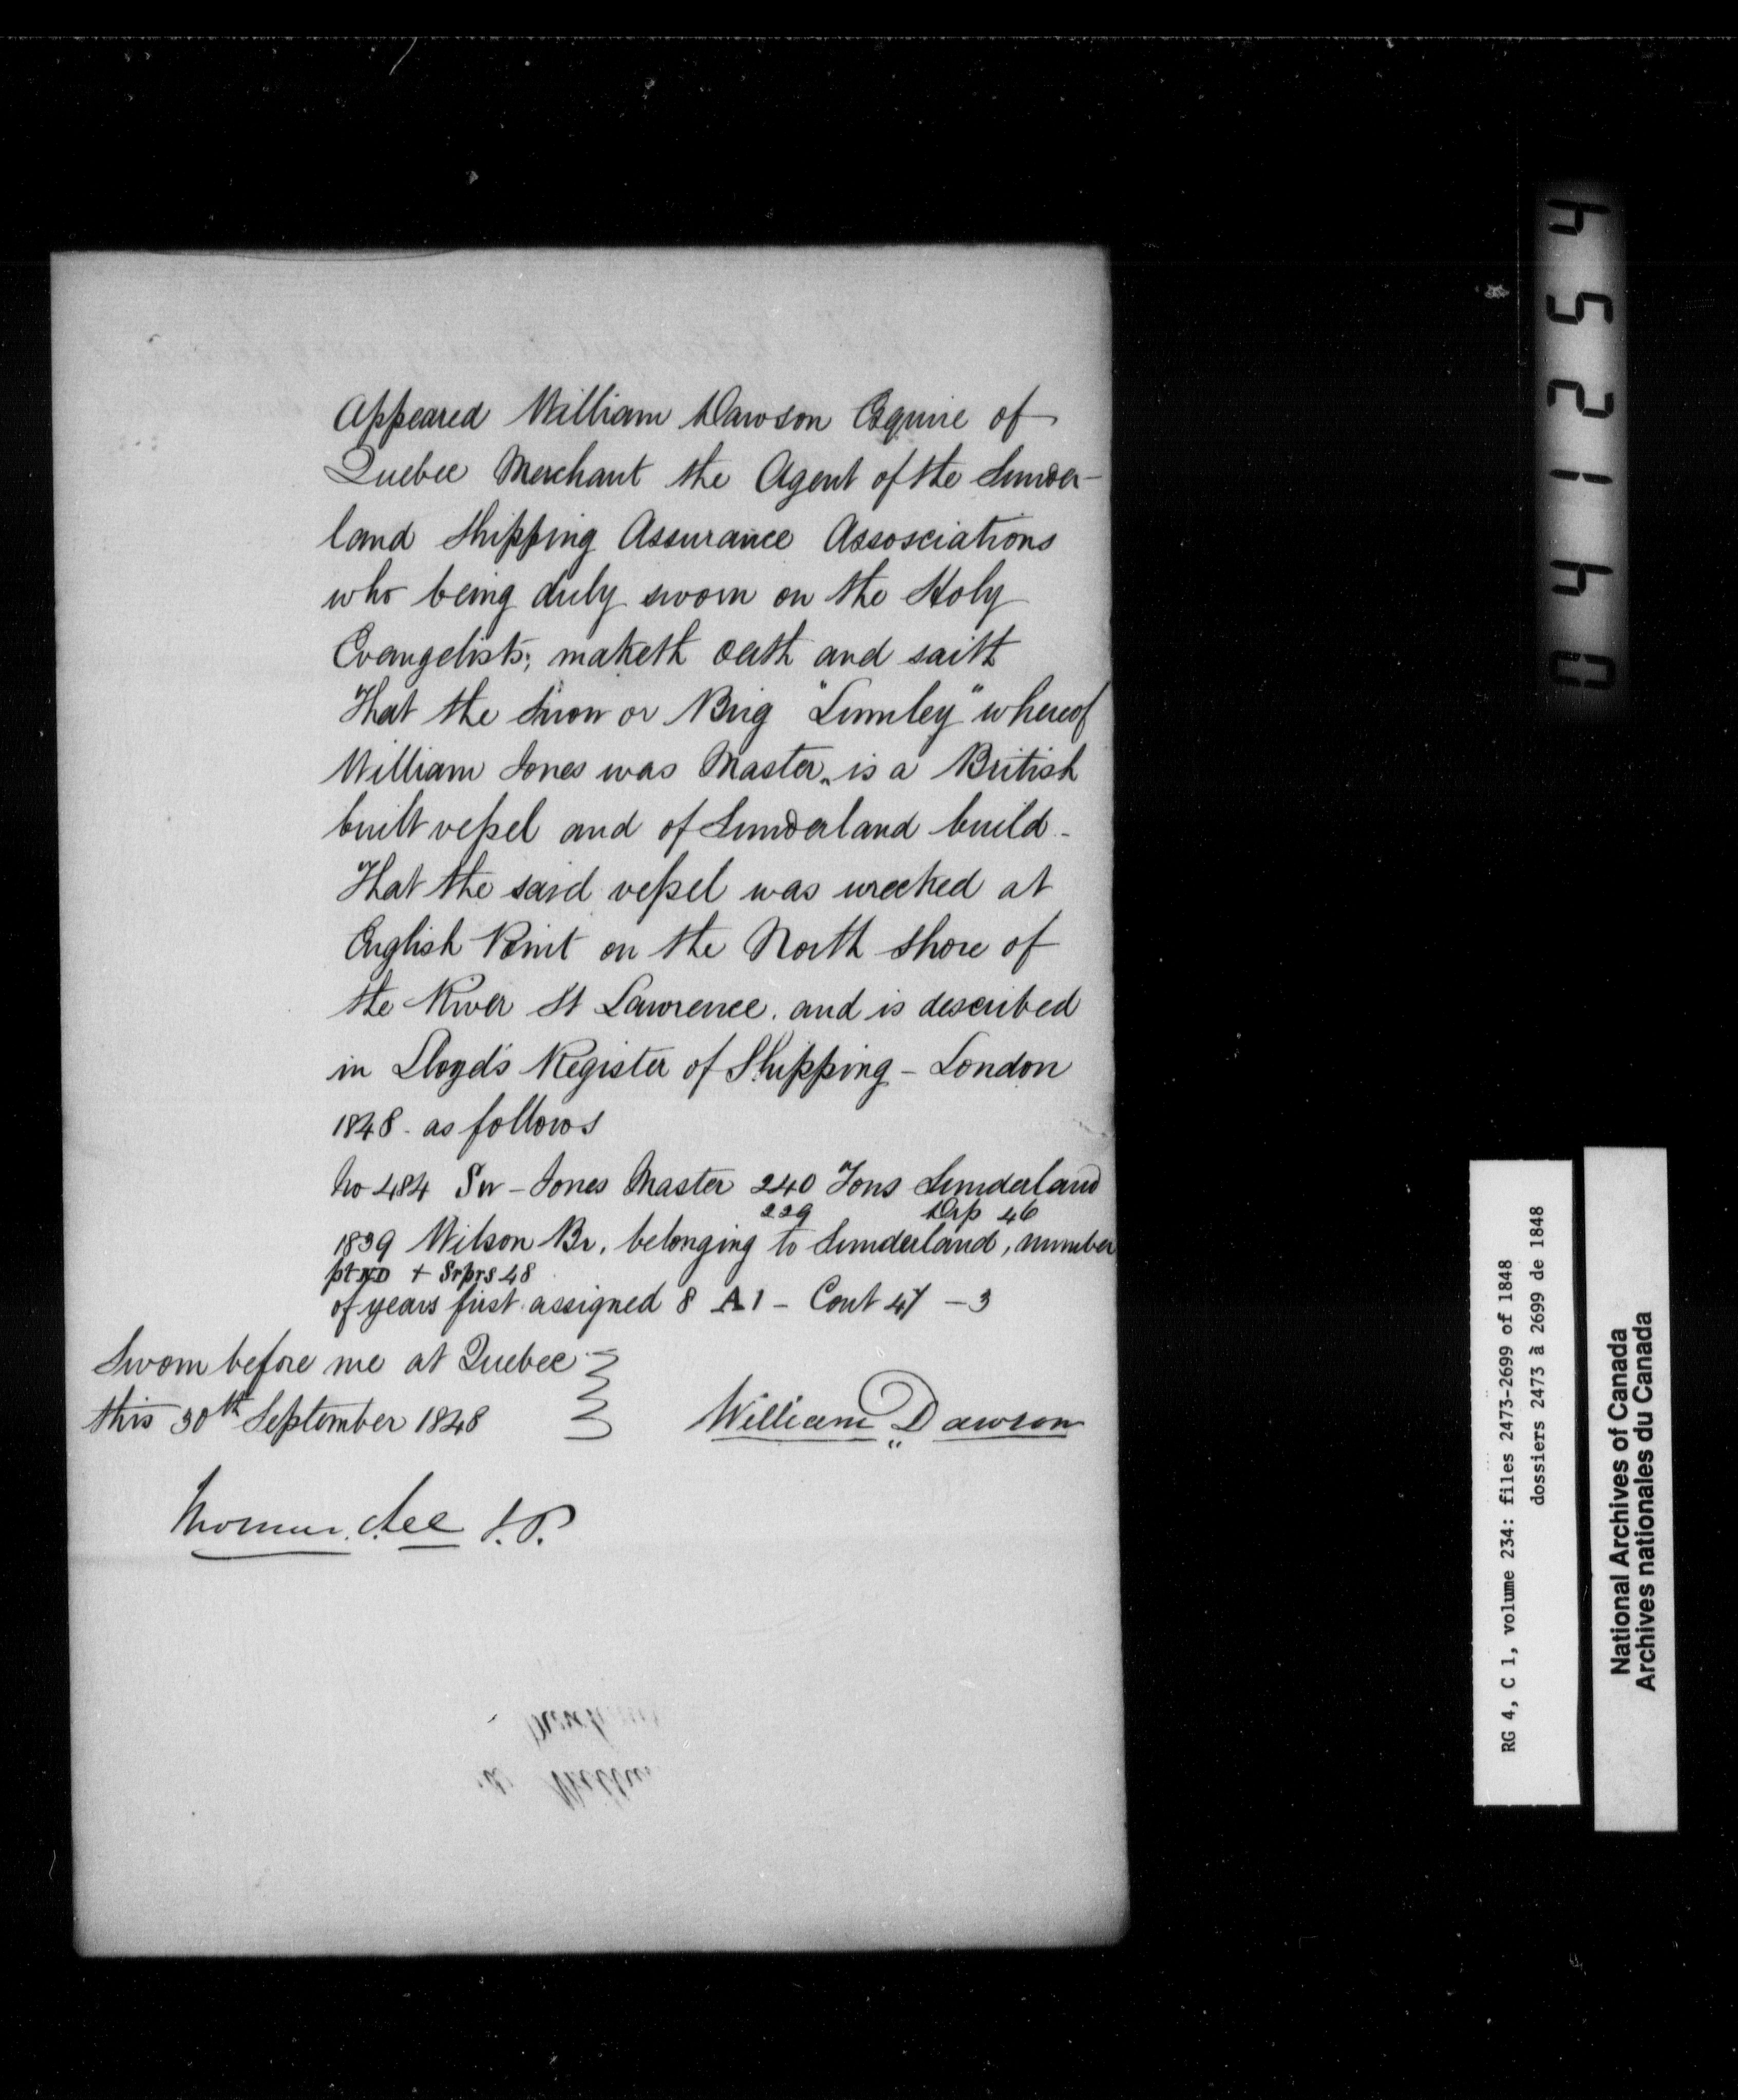 Appeared William Dawson Esquire of
Quebec Merchant the Agent of the Sunder-
land Shipping Assurance Assosciations
who being duly sworn on the Holy
Evangelists; maketh oath and saith
That the Snow or Brig "Lumley" whereof
William Jones was Master, is a British
built vessel and of Sunderland build -
That the said vessel was wrecked at
English Point on the North Shore of
the River St Lawrence. and is described
in Lloyd's Register of Shipping - London
1848 - as follows
No 484 Sw - Jones Master 240 Tons Sunderland
229 Drp 46
1839 Wilson Br. belonging to Sunderland, number
pt ND + Srprs 48
of years first assigned 8 A 1 - Cont 47 - 3
Sworn before me at Quebec
this 30th September 1848
William Dawson
J.P.
04 1254
RG 4, C 1, volume 234: files 2473-2699 of 1848
dossiers 2473 à 2699 de 1848
National Archives of Canada
Archives nationales du Canada